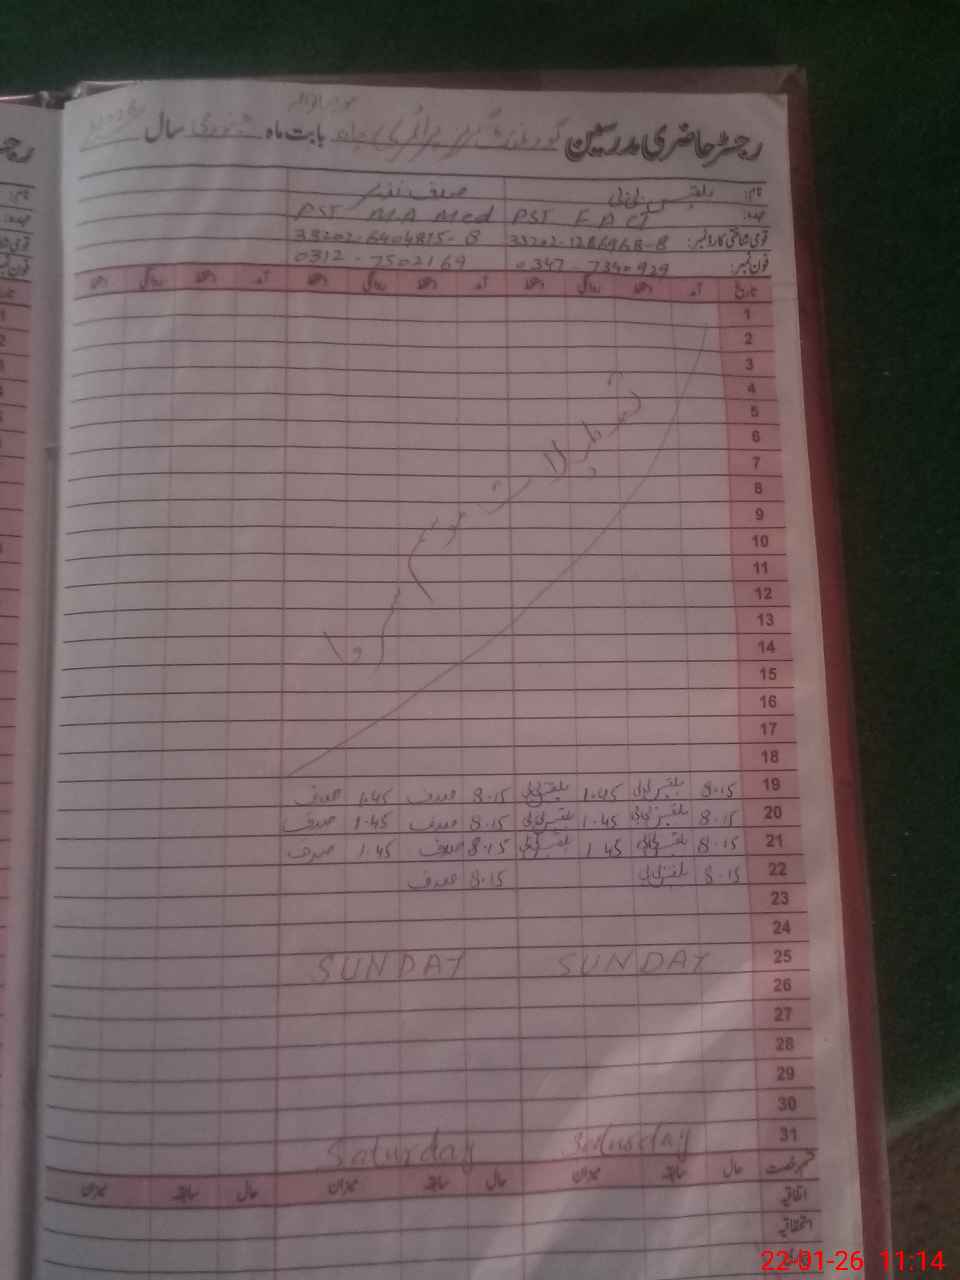 رجسٹر حاضری مدرسین گورنمنٹ گرلز پرائمری بابت ماہ جنوری سال
نام: بلقیس بی بی صدف نذیر
عہدہ: PST F A CT PST M A Med
قومی شناختی کارڈ نمبر: 33202-6404815-8
فون نمبر: 0347-7340929 0312-7502169
تاریخ آمد دستخط روانگی دستخط آمد دستخط روانگی دستخط آمد دستخط روانگی دستخط
1
2
3
4
5
6
7
8
9
10
11
12
13
14
15
16
17
18
تعطیلات موسم سرما
19 8.15 بلقیس بی بی 1.45 بلقیس بی بی 8.15 صدف 1.45 صدف
20 8.15 بلقیس بی بی 1.45 بلقیس بی بی 8.15 صدف 1.45 صدف
21 8.15 بلقیس بی بی 1.45 بلقیس بی بی 8.15 صدف 1.45 صدف
22 8.15 بلقیس بی بی 8.15 صدف
23
24
25 SUNDAY SUNDAY
26
27
28
29
30
31 Saturday
قسم رخصت حال سابقہ میزان حال سابقہ میزان حال سابقہ میزان
اتفاقیہ
استحقاقیہ
22-01-26 11:14